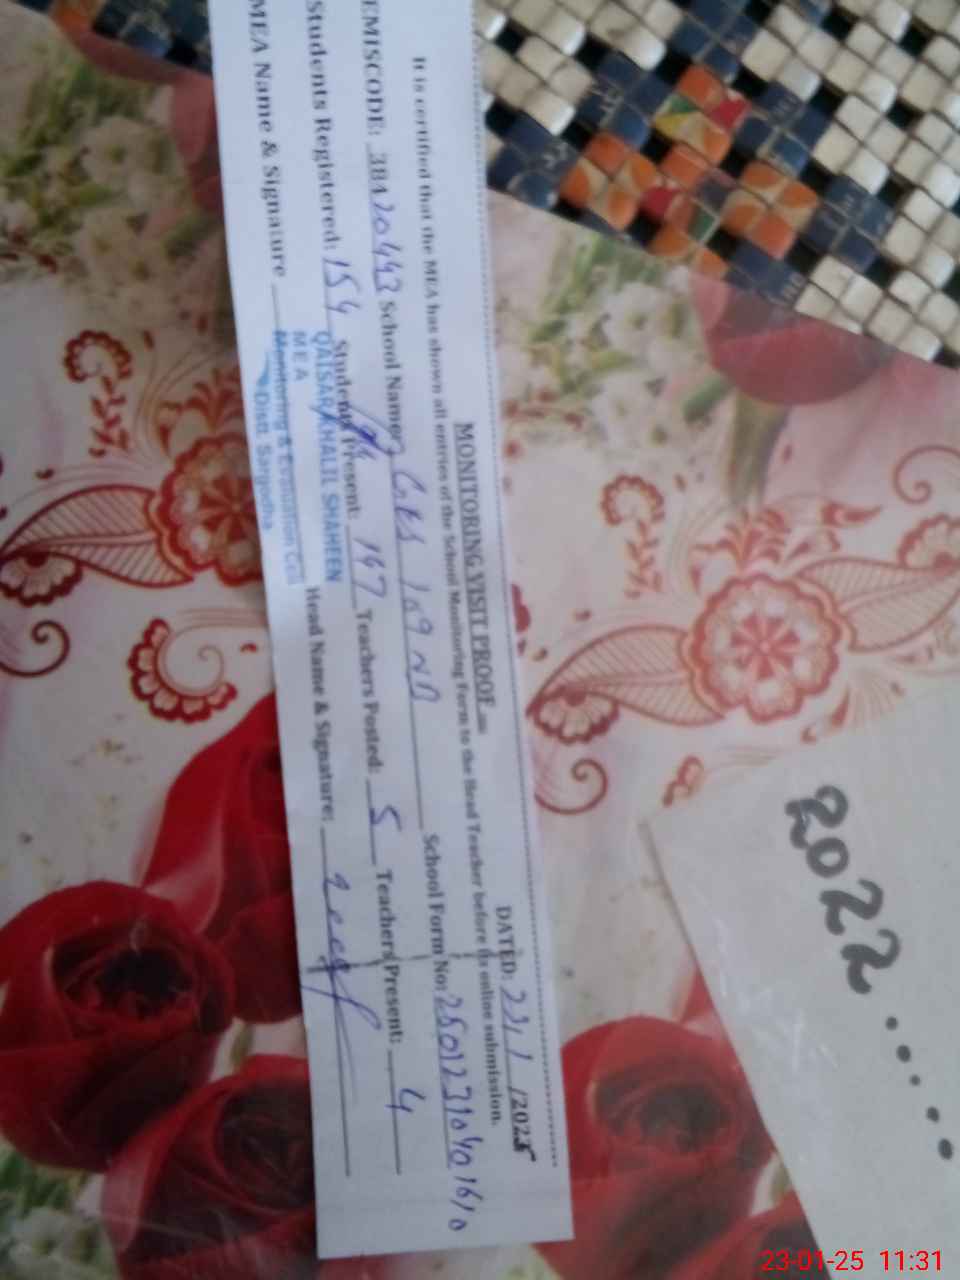 MONITORING VISIT PROOF
DATED: 23/1/2025
It is certified that the MEA has shown all entries of the School Monitoring Form to the Head Teacher before its online submission.
EMISCODE: 38420443 School Name: GES 109 NB School Form No: 2501231040
Students Registered: 154 Students Present: 147 Teachers Posted: 5 Teachers Present: 4
MEA Name & Signature Head Name & Signature:
QAISAR KHALIL SHAHEEN
MEA
Monitoring & Evaluation Cell
Distt. Sargodha
2022.....
23-01-25 11:31